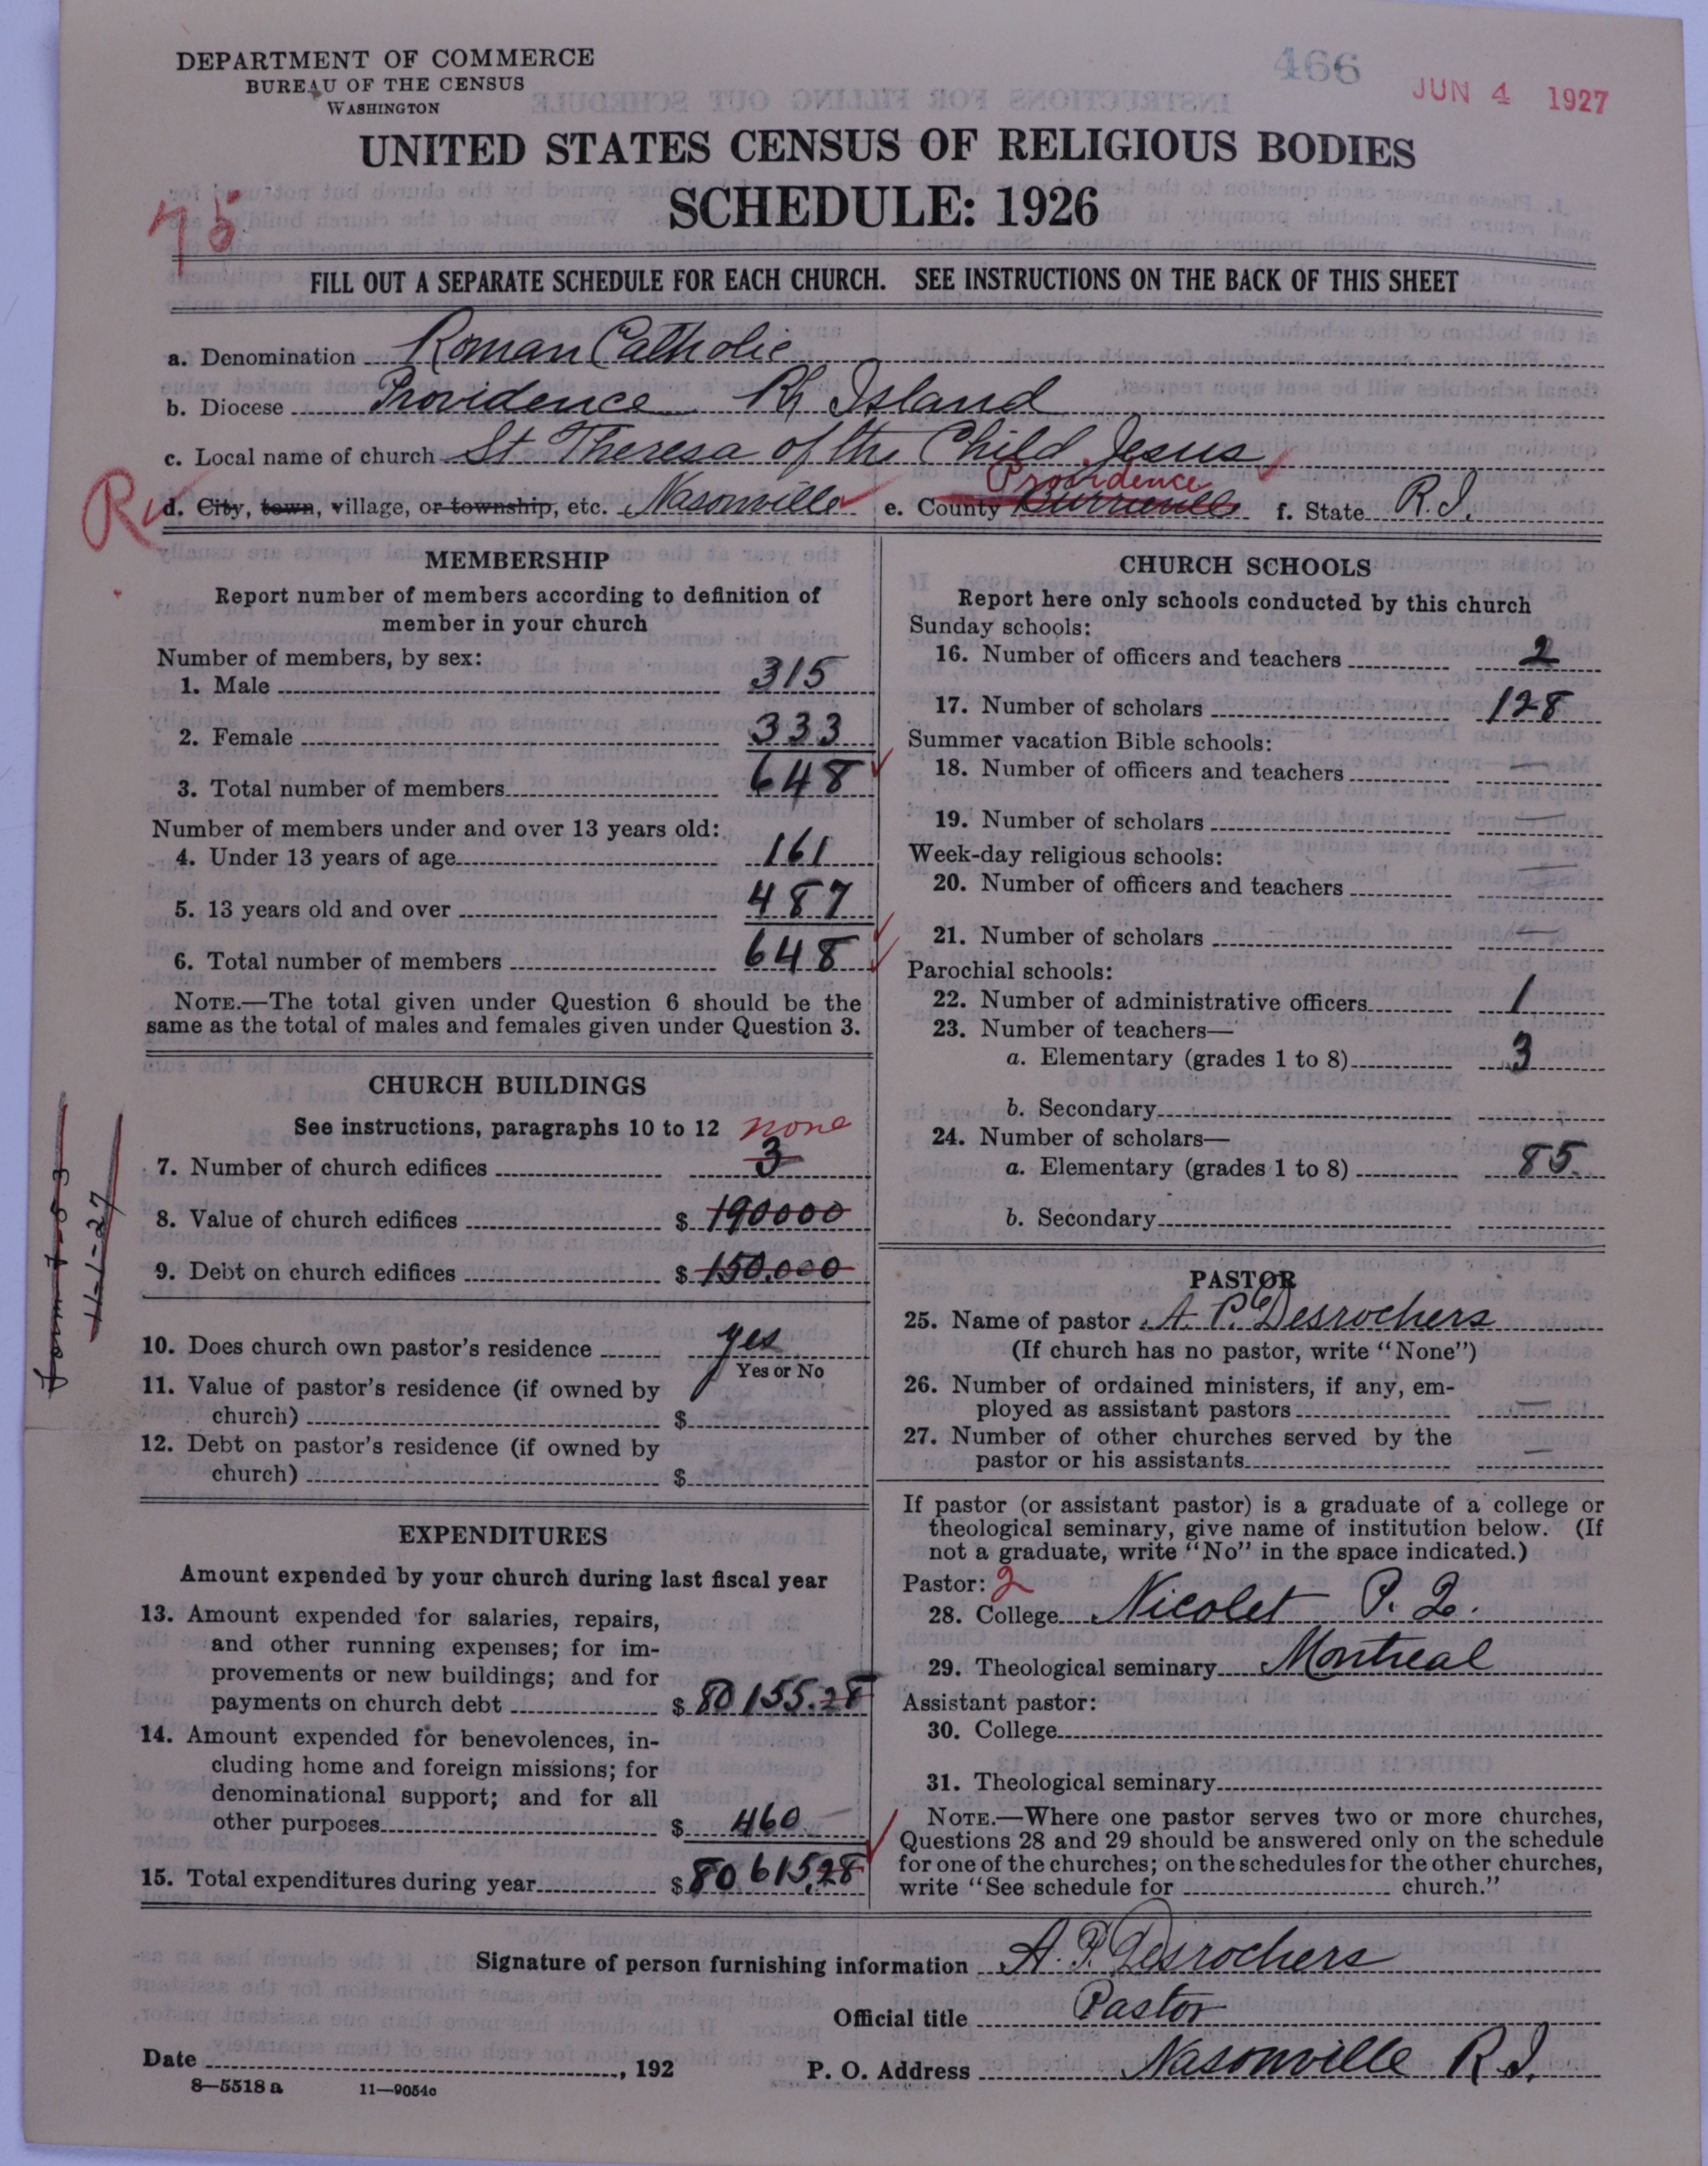 DEPARTMENT OF COMMERCE
BUREAU OF THE CENSUS
WASHINGTON
466
JUN 4 1927
UNITED STATES CENSUS OF RELIGIOUS BODIES
SCHEDULE: 1926
75
FILL OUT A SEPARATE SCHEDULE FOR EACH CHURCH. SEE INSTRUCTIONS ON THE BACK OF THIS SHEET
a. Denomination Roman Catholic
b. Diocese Providence Rh Island
c. Local name of church St Theresa of the Child Jesus
Providence
R d. City, town, village, or township, etc. Nasonville e. County Burrillville f. State R.I.
MEMBERSHIP
Report number of members according to definition of
member in your church
Number of members, by sex:
1. Male 315
2. Female 333
3. Total number of members 648
Number of members under and over 13 years old:
4. Under 13 years of age 161
5. 13 years old and over 487
6. Total number of members 648
NOTE.—The total given under Question 6 should be the
same as the total of males and females given under Question 3.
CHURCH BUILDINGS
See instructions, paragraphs 10 to 12 none
7. Number of church edifices 3
8. Value of church edifices $ 190000
9. Debt on church edifices $ 150.000
10. Does church own pastor's residence yes
Yes or No
11. Value of pastor's residence (if owned by
church) $
12. Debt on pastor's residence (if owned by
church) $
EXPENDITURES
Amount expended by your church during last fiscal year
13. Amount expended for salaries, repairs,
and other running expenses; for im-
provements or new buildings; and for
payments on church debt $ 80155.28
14. Amount expended for benevolences, in-
cluding home and foreign missions; for
denominational support; and for all
other purposes $ 460
15. Total expenditures during year $ 80615,28
CHURCH SCHOOLS
Report here only schools conducted by this church
Sunday schools:
16. Number of officers and teachers 2
17. Number of scholars 128
Summer vacation Bible schools:
18. Number of officers and teachers —
19. Number of scholars —
Week-day religious schools:
20. Number of officers and teachers —
21. Number of scholars —
Parochial schools:
22. Number of administrative officers 1
23. Number of teachers—
a. Elementary (grades 1 to 8) 3
b. Secondary
24. Number of scholars—
a. Elementary (grades 1 to 8) 85
b. Secondary
PASTOR
25. Name of pastor A. P. Desrochers
(If church has no pastor, write "None")
26. Number of ordained ministers, if any, em-
ployed as assistant pastors —
27. Number of other churches served by the
pastor or his assistants —
If pastor (or assistant pastor) is a graduate of a college or
theological seminary, give name of institution below. (If
not a graduate, write "No" in the space indicated.)
Pastor: 2
28. College Nicolet P. Q.
29. Theological seminary Montreal
Assistant pastor:
30. College
31. Theological seminary
NOTE.—Where one pastor serves two or more churches,
Questions 28 and 29 should be answered only on the schedule
for one of the churches; on the schedules for the other churches,
write "See schedule for church."
Signature of person furnishing information A. P. Desrochers
Official title Pastor
Date , 192 P. O. Address Nasonville R I.
8—5518 a 11—9054c
11-1-27